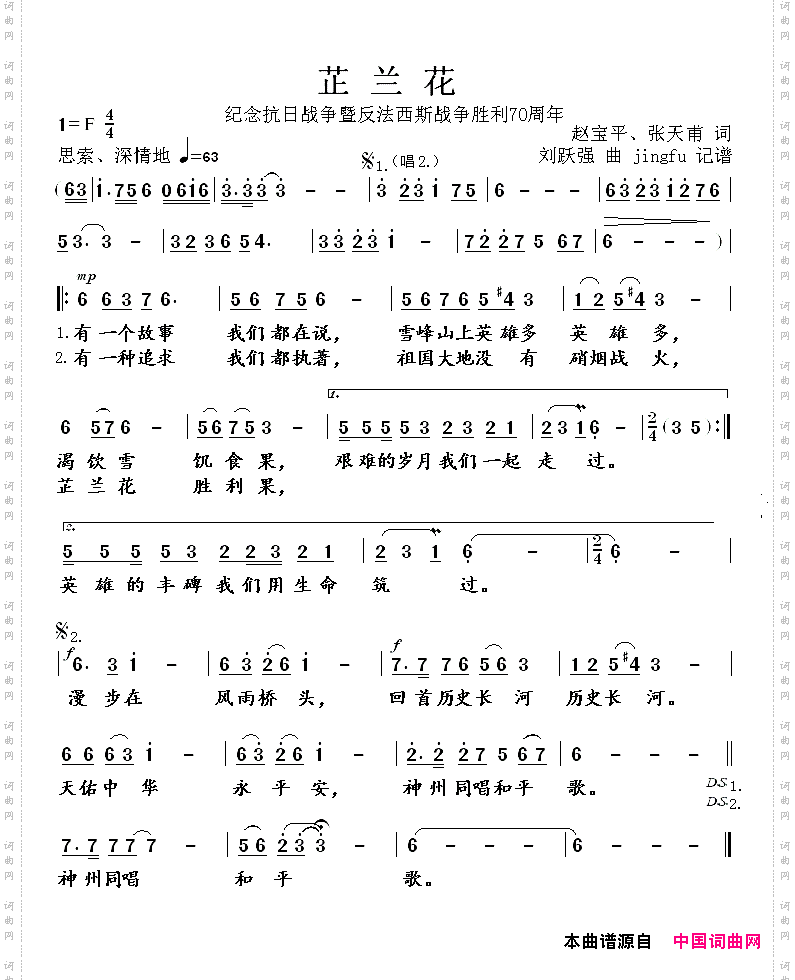 芷兰花
纪念抗日战争暨反法西斯战争胜利70周年
1=F 4/4
赵宝平、张天甫 词
思索、深情地 ♩=63
刘跃强 曲 jingfu 记谱
𝄋1.(唱2.)
(63 1·756 0616 | 3·33 3 - - | 3 231 75 | 6 - - - | 63231276 |
53· 3 - | 32 36 54· | 33 23 1 - | 72 275 67 | 6 - - -) |
mp
|: 6 63 76· | 56 756 - | 56 765 #43 | 12 5#43 - |
1.有一个故事 我们都在说, 雪峰山上英雄多 英雄多,
2.有一种追求 我们都执著, 祖国大地没有 硝烟战火,
1.
6 576 - | 56753 - | 55553 23 21 | 2316 - | 2/4 (35) :|
渴饮雪 饥食果, 艰难的岁月我们一起走过。
芷兰花 胜利果,
2.
5 5 5 53 2 23 21 | 23 1 6 - | 2/4 6 - |
英雄的丰碑我们用生命筑过。
𝄋2.
f f
| 6· 3 1 - | 63 261 - | 7·7 76 563 | 12 5#43 - |
漫步在 风雨桥头, 回首历史长河 历史长河。
66 631 - | 63 261 - | 2·2 27 567 | 6 - - - ||
天佑中华 永平安, 神州同唱和平歌。
D.S.1.
D.S.2.
7·7 777 - | 56 233 - | 6 - - - | 6 - - - ||
神州同唱 和平 歌。
本曲谱源自 中国词曲网
词曲网